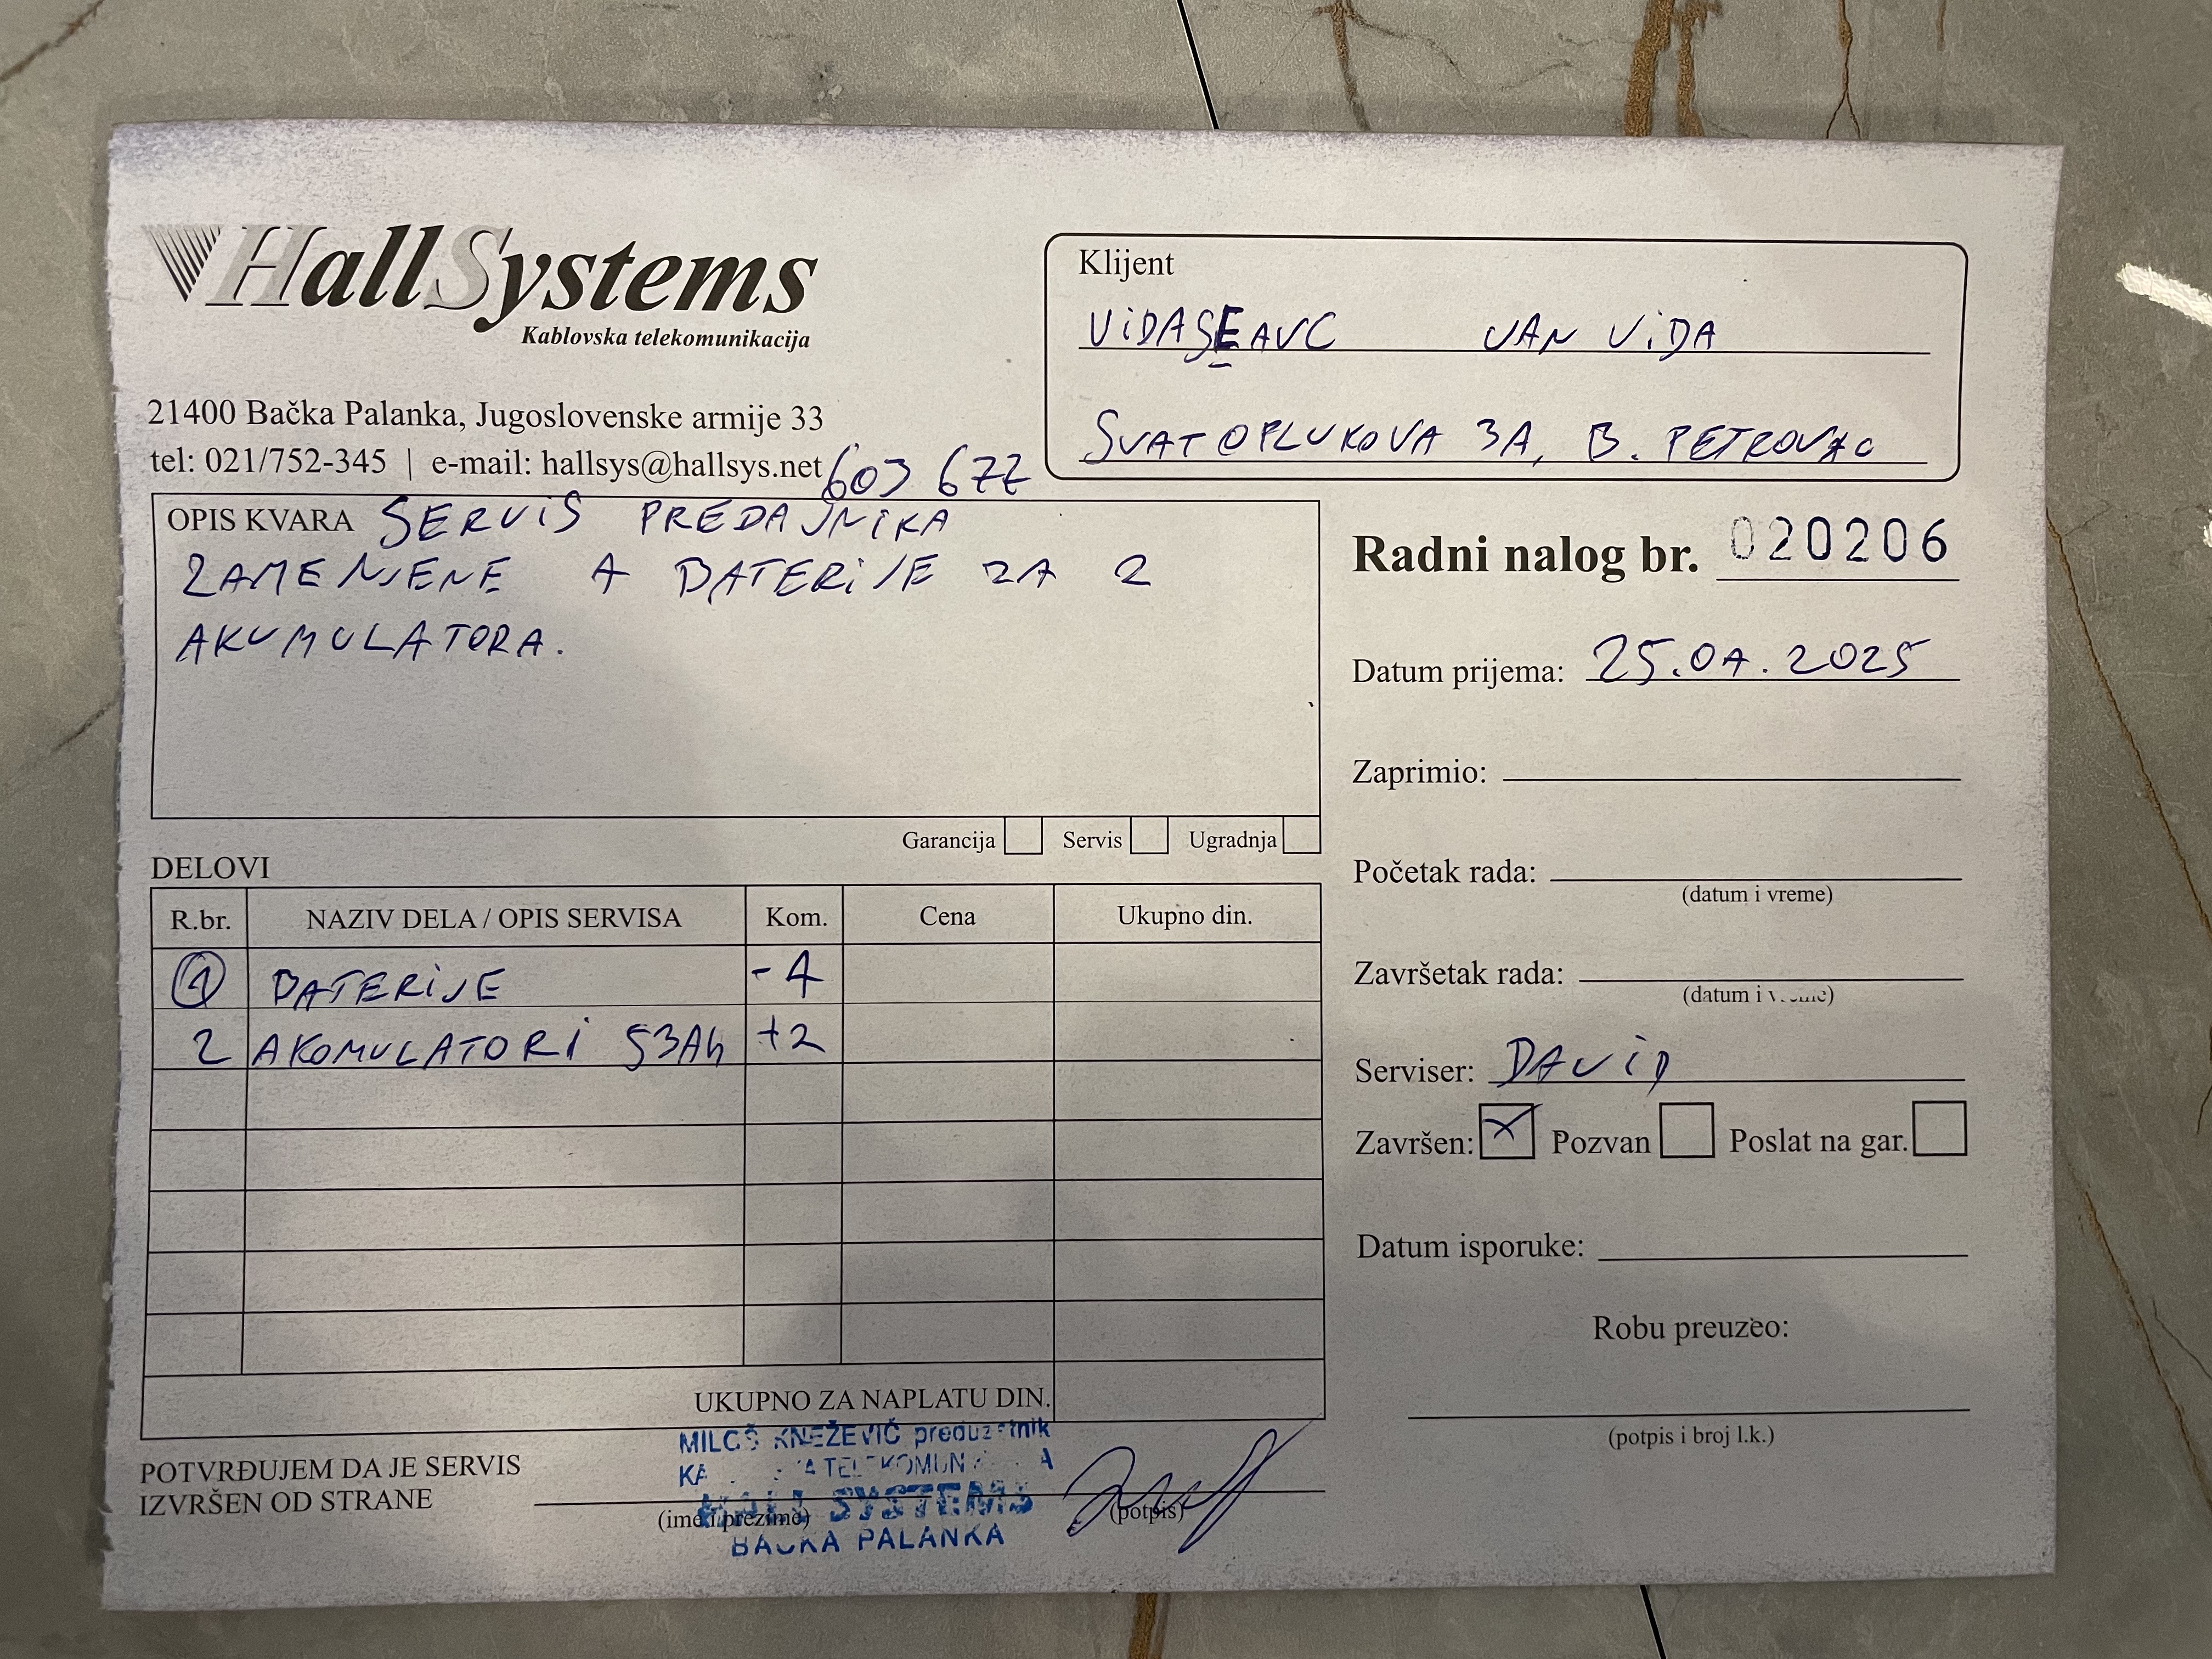 HallSystems
Kablovska telekomunikacija
21400 Bačka Palanka, Jugoslovenske armije 33
tel: 021/752-345 | e-mail: hallsys@hallsys.net
Klijent
VIDASEAVC JAN VIDA
SVATOPLUKOVA 3A, B. PETROVAC
OPIS KVARA SERVIS PREDAJNIKA
ZAMENJENE 4 BATERIJE ZA 2
AKUMULATORA.
Garancija Servis Ugradnja
Radni nalog br. 020206
Datum prijema: 25.04.2025
Zaprimio:
Početak rada:
(datum i vreme)
Završetak rada:
(datum i vreme)
Serviser: DAVID
Završen: X Pozvan Poslat na gar.
Datum isporuke:
Robu preuzeo:
(potpis i broj l.k.)
DELOVI
R.br. NAZIV DELA / OPIS SERVISA Kom. Cena Ukupno din.
1 BATERIJE -4
2 AKOMULATORI 53Ah +2
UKUPNO ZA NAPLATU DIN.
POTVRĐUJEM DA JE SERVIS
IZVRŠEN OD STRANE
(ime i prezime) (potpis)
MILOŠ KNEŽEVIĆ preduzetnik
HALL SYSTEMS
BAČKA PALANKA